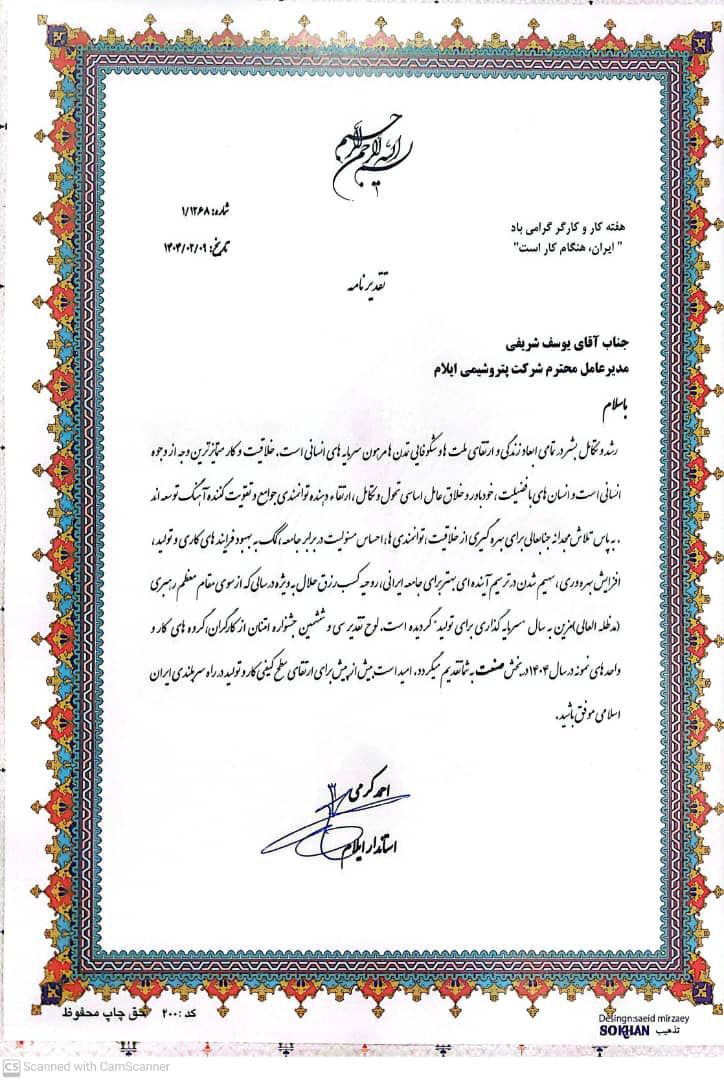 بسم الله الرحمن الرحیم
شماره: ۱/۱۲۶۸
تاریخ: ۱۴۰۴/۰۲/۰۹
هفته کار و کارگر گرامی باد
" ایران، هنگام کار است"
تقدیر نامه
جناب آقای یوسف شریفی
مدیرعامل محترم شرکت پتروشیمی ایلام
باسلام
رشد و تکامل بشر در تمامی ابعاد زندگی و ارتقای ملت ها و شکوفایی تمدن ها مرهون سرمایه های انسانی است. خلاقیت و کار متمایزترین وجه از وجوه
انسانی است و انسان های با فضیلت، خودباور و خلاق عامل اساسی تحول و تکامل، ارتقاء دهنده توانمندی جوامع و تقویت کننده آهنگ توسعه اند
. به پاس تلاش مجدانه جنابعالی برای بهره گیری از خلاقیت، توانمندی ها، احساس مسئولیت در برابر جامعه، کمک به بهبود فرایند های کاری و تولید،
افزایش بهره وری، سهیم شدن در ترسیم آینده ای بهتر برای جامعه ایرانی، روحیه کسب رزق حلال به ویژه در سالی که از سوی مقام معظم رهبری
(مدظله العالی) مزین به سال "سرمایه گذاری برای تولید" گردیده است. لوح تقدیر سی و ششمین جشنواره امتنان از کارگران، گروه های کار و
واحدهای نمونه در سال ۱۴۰۴ در بخش صنعت به شما تقدیم میگردد. امید است بیش از پیش برای ارتقای سطح کیفی کار و تولید در راه سربلندی ایران
اسلامی موفق باشید.
احمد کرمی
استاندار ایلام
حق چاپ محفوظ
کد: ۲۰۰
Desingn:saeid mirzaey
SOKHAN تذهیب
CS Scanned with CamScanner